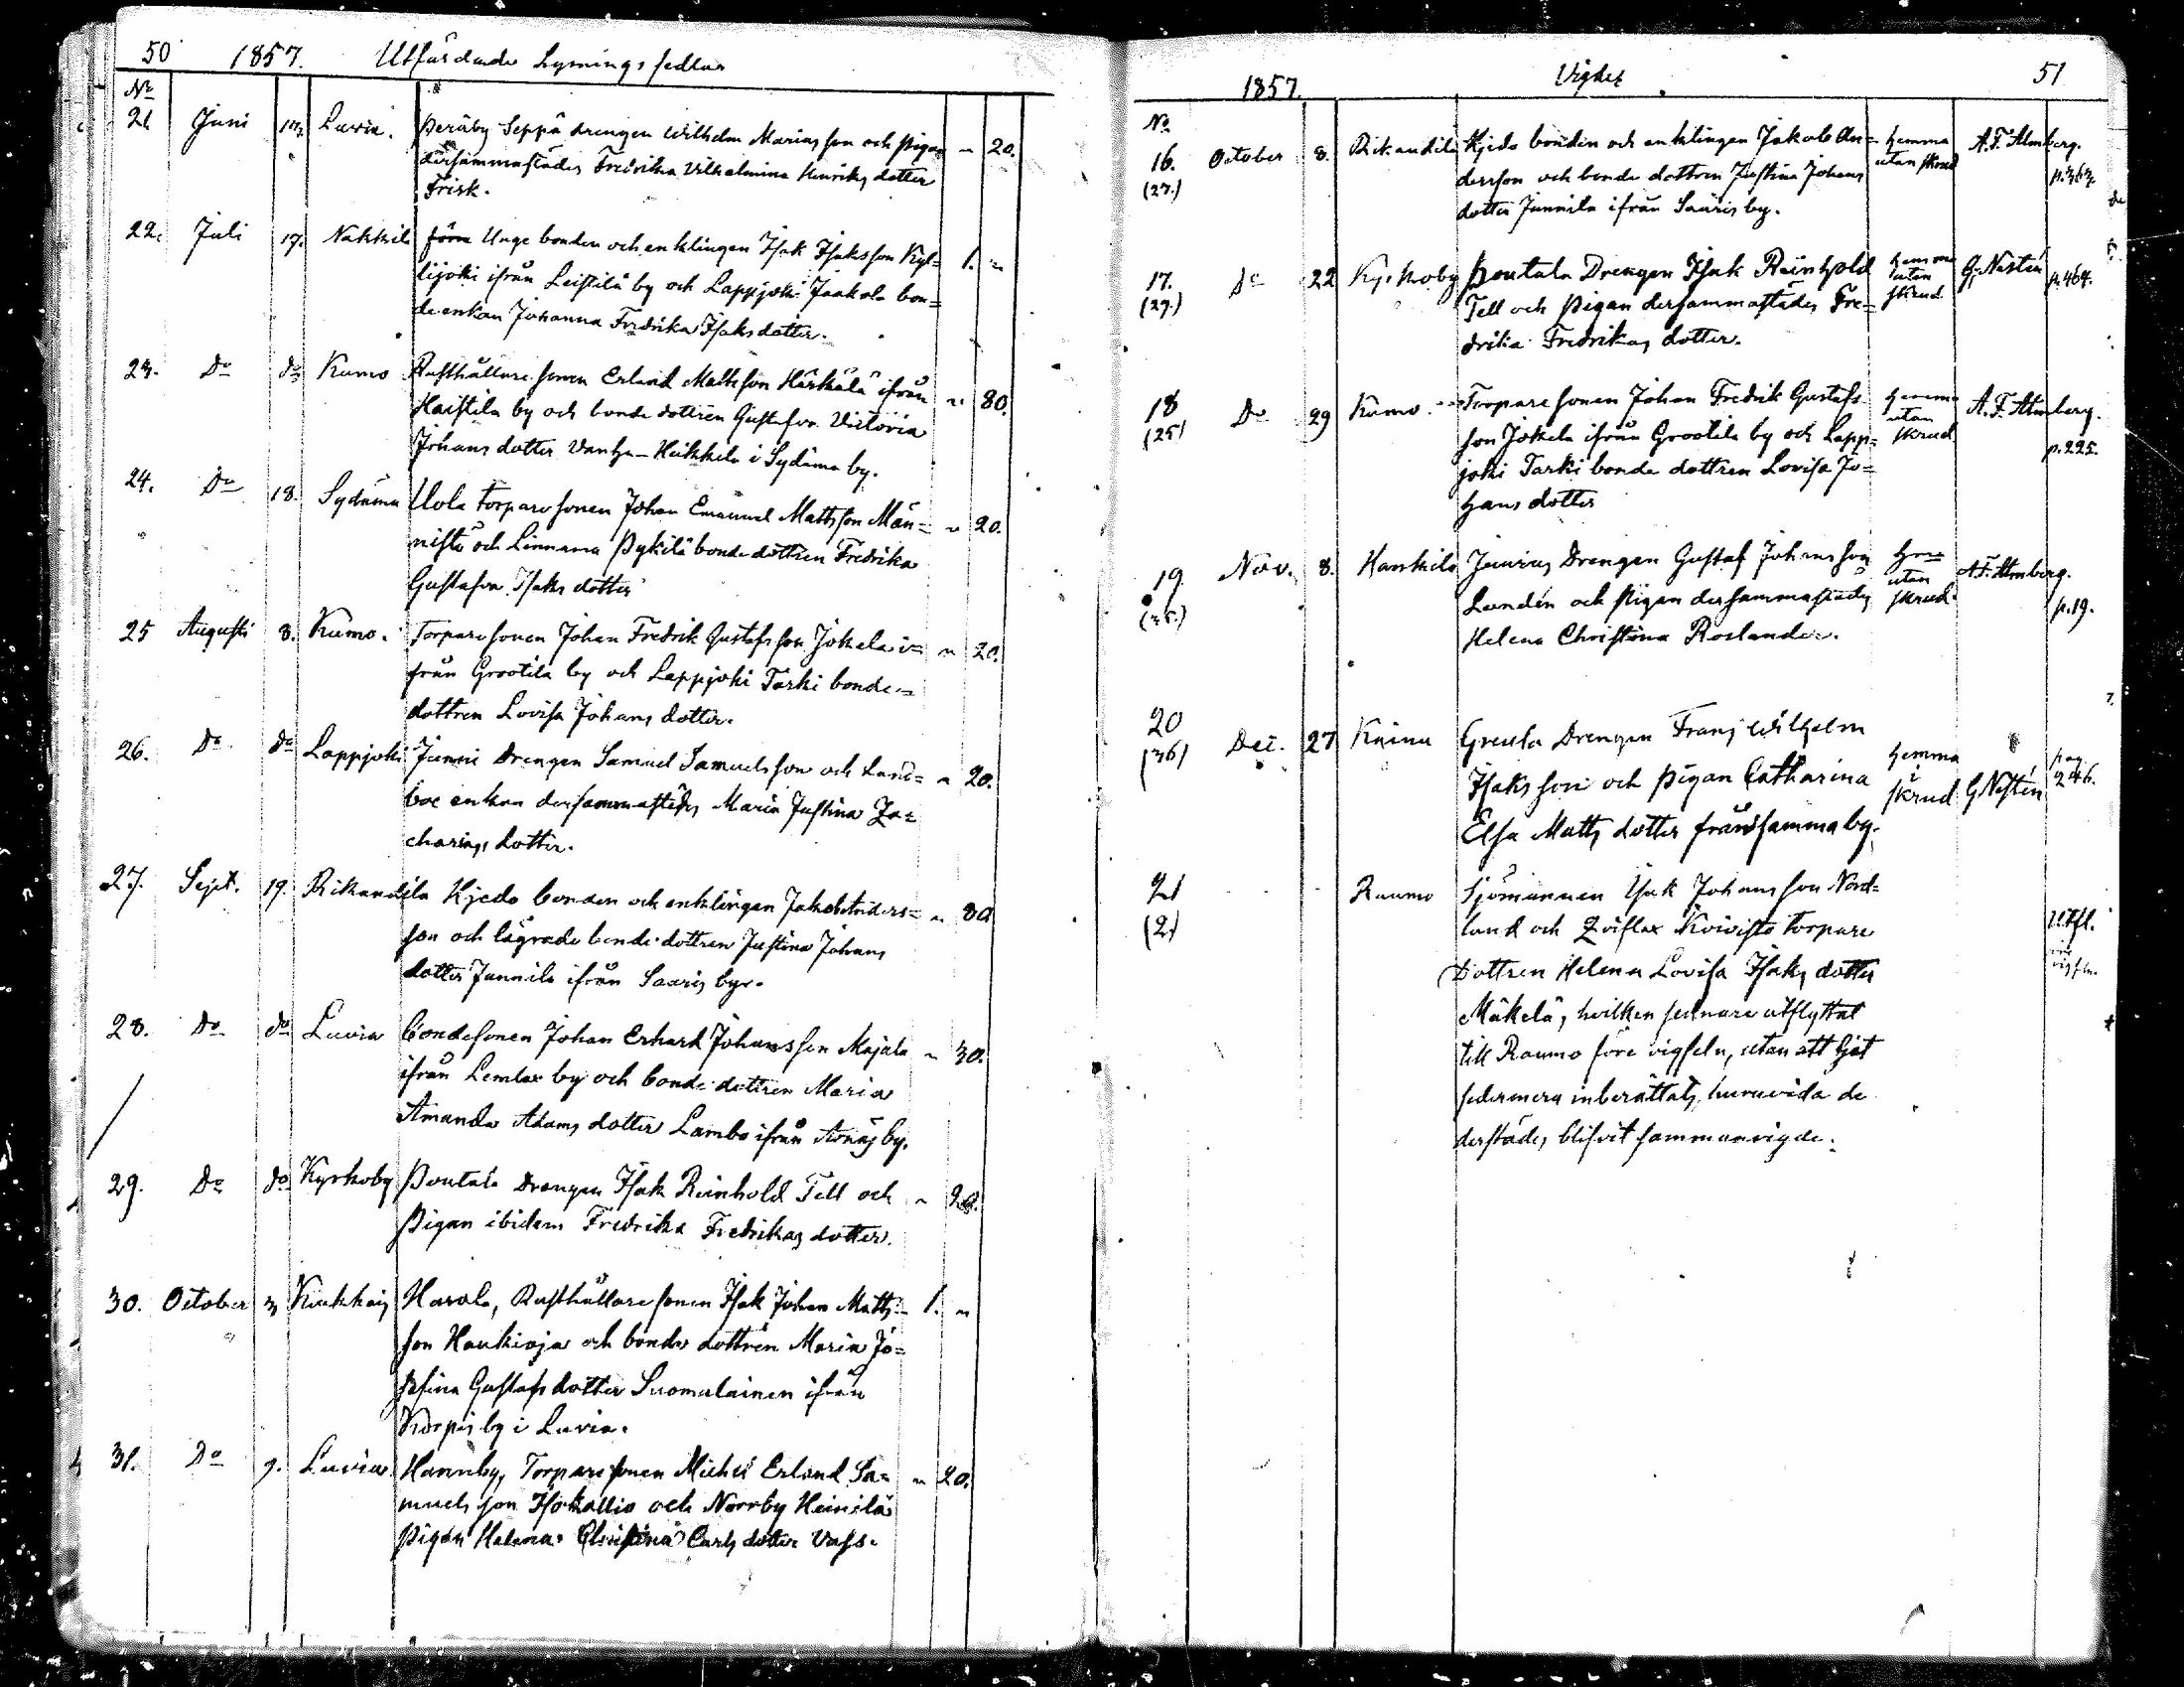 50 1857. Utfärdade Lysnings sedlar
No
21. Juni 17. Luvia. Peräby Seppä drengen Wilhelm Mariasson och Pigan " 20.
dersammastädes Fredrika Vilhelmina Henriks dotter
Frisk.
22. Juli 17. Nakkila Unge bonden och enklingen Isak Isaksson Kyl= 1. "
lijoki ifrån Leistilä by och Lappjoki Jaakola bon=
de enkan Johanna Fredrika Isaks dotter.
23. Do do Kumo Rusthållare sonen Erland Mattsson Härkälä ifrån " 80.
Haistila by och bonde dottren Gustafva Victoria
Johans dotter Vanha-Heikkilä i Sydänma by.
24. Do 18. Sydänma Uola torpare sonen Johan Emanuel Mattsson Män= " 20.
nistö och Linnama Pykilä bonde dottren Fredrika
Gustafva Isaks dotter
25 Augusti 8. Kumo. Torpare sonen Johan Fredrik Gustafsson Jokela i= " 20.
från Grootila by och Lappjoki Tarki bonde=
dottren Lovisa Johans dotter.
26. Do do Lappjoki Junni Drengen Samuel Samuelsson och Land= " 20.
boe enkan dersammastädes Maria Justina Za=
charias dotter.
27. Sept. 19. Rikandila Kjedo bonden och enklingen Jakob Anders= " 80
son och lägrade bonde dottren Justina Johans
dotter Junnila ifrån Saaris by.
28. Do do Luvia Bondesonen Johan Erhard Johansson Majala " 30.
ifrån Lemlax by och bonde dottren Maria
Amanda Adams dotter Lambo ifrån Arnäs by.
29. Do do Kyrkoby Poutala Drengen Isak Reinhold Tell och " 20.
Pigan ibidem Fredrika Fredrikas dotter.
30. October 3 Kiukkais Harola, Rusthållare sonen Isak Johan Matts= 1. "
son Haukioja och bonde dottren Maria Jo=
sefina Gustafs dotter Suomalainen ifrån
Korpis by i Luvia.
31. Do 9. Luvia Hannby, Torpare sonen Michel Erland Sa= " 20.
muelsson Isokallio och Norrby Heinilä
Pigan Helena Christina Carls dotter Vass.
1857. Vigde 51
No
16. October 8. Rikandila Kjedo bonden och enklingen Jakob An= hemma A.F. Almberg.
(27.) dersson och bonde dottren Justina Johans utan skrud p. 363.
dotter Junnila ifrån Saaris by.
17. Do 22 Kyrkoby Poutala Drengen Isak Reinhold hemma G. Nestén p. 464.
(29.) Tell och Pigan dersammastädes Fre= utan
drika Fredrikas dotter. skrud
18 Do 29 Kumo. Torpare sonen Johan Fredrik Gustafs hemma A.F. Almberg.
(25) son Jokela ifrån Grootila by och Lapp= utan skrud p. 225.
joki Tarki bonde dottren Lovisa Jo=
hans dotter
19 Nov. 8. Hankila Junius Drengen Gustaf Johansson utan A.F. Almberg.
Lundén och Pigan dersammastädes skrud. p. 19.
Helena Christina Roslander.
20 Dec. 27 Knina Greula Drengen Frans Wilhelm hemma pag
(36) Isaksson och Pigan Catharina i G Nestén 246.
Elsa Matts dotter från samma by. skrud
21 Raumo Sjömannen Isak Johansson Nord=
(2) lund och Zviflax Koivisto torpare Utfl.
Dottren Helena Lovisa Isaks dotter
Mäkelä, hvilken sednare utflyttat
till Raumo före vigseln, utan att hit
sedermera inberättats, huruvida de
derstädes blifvit sammanvigde.